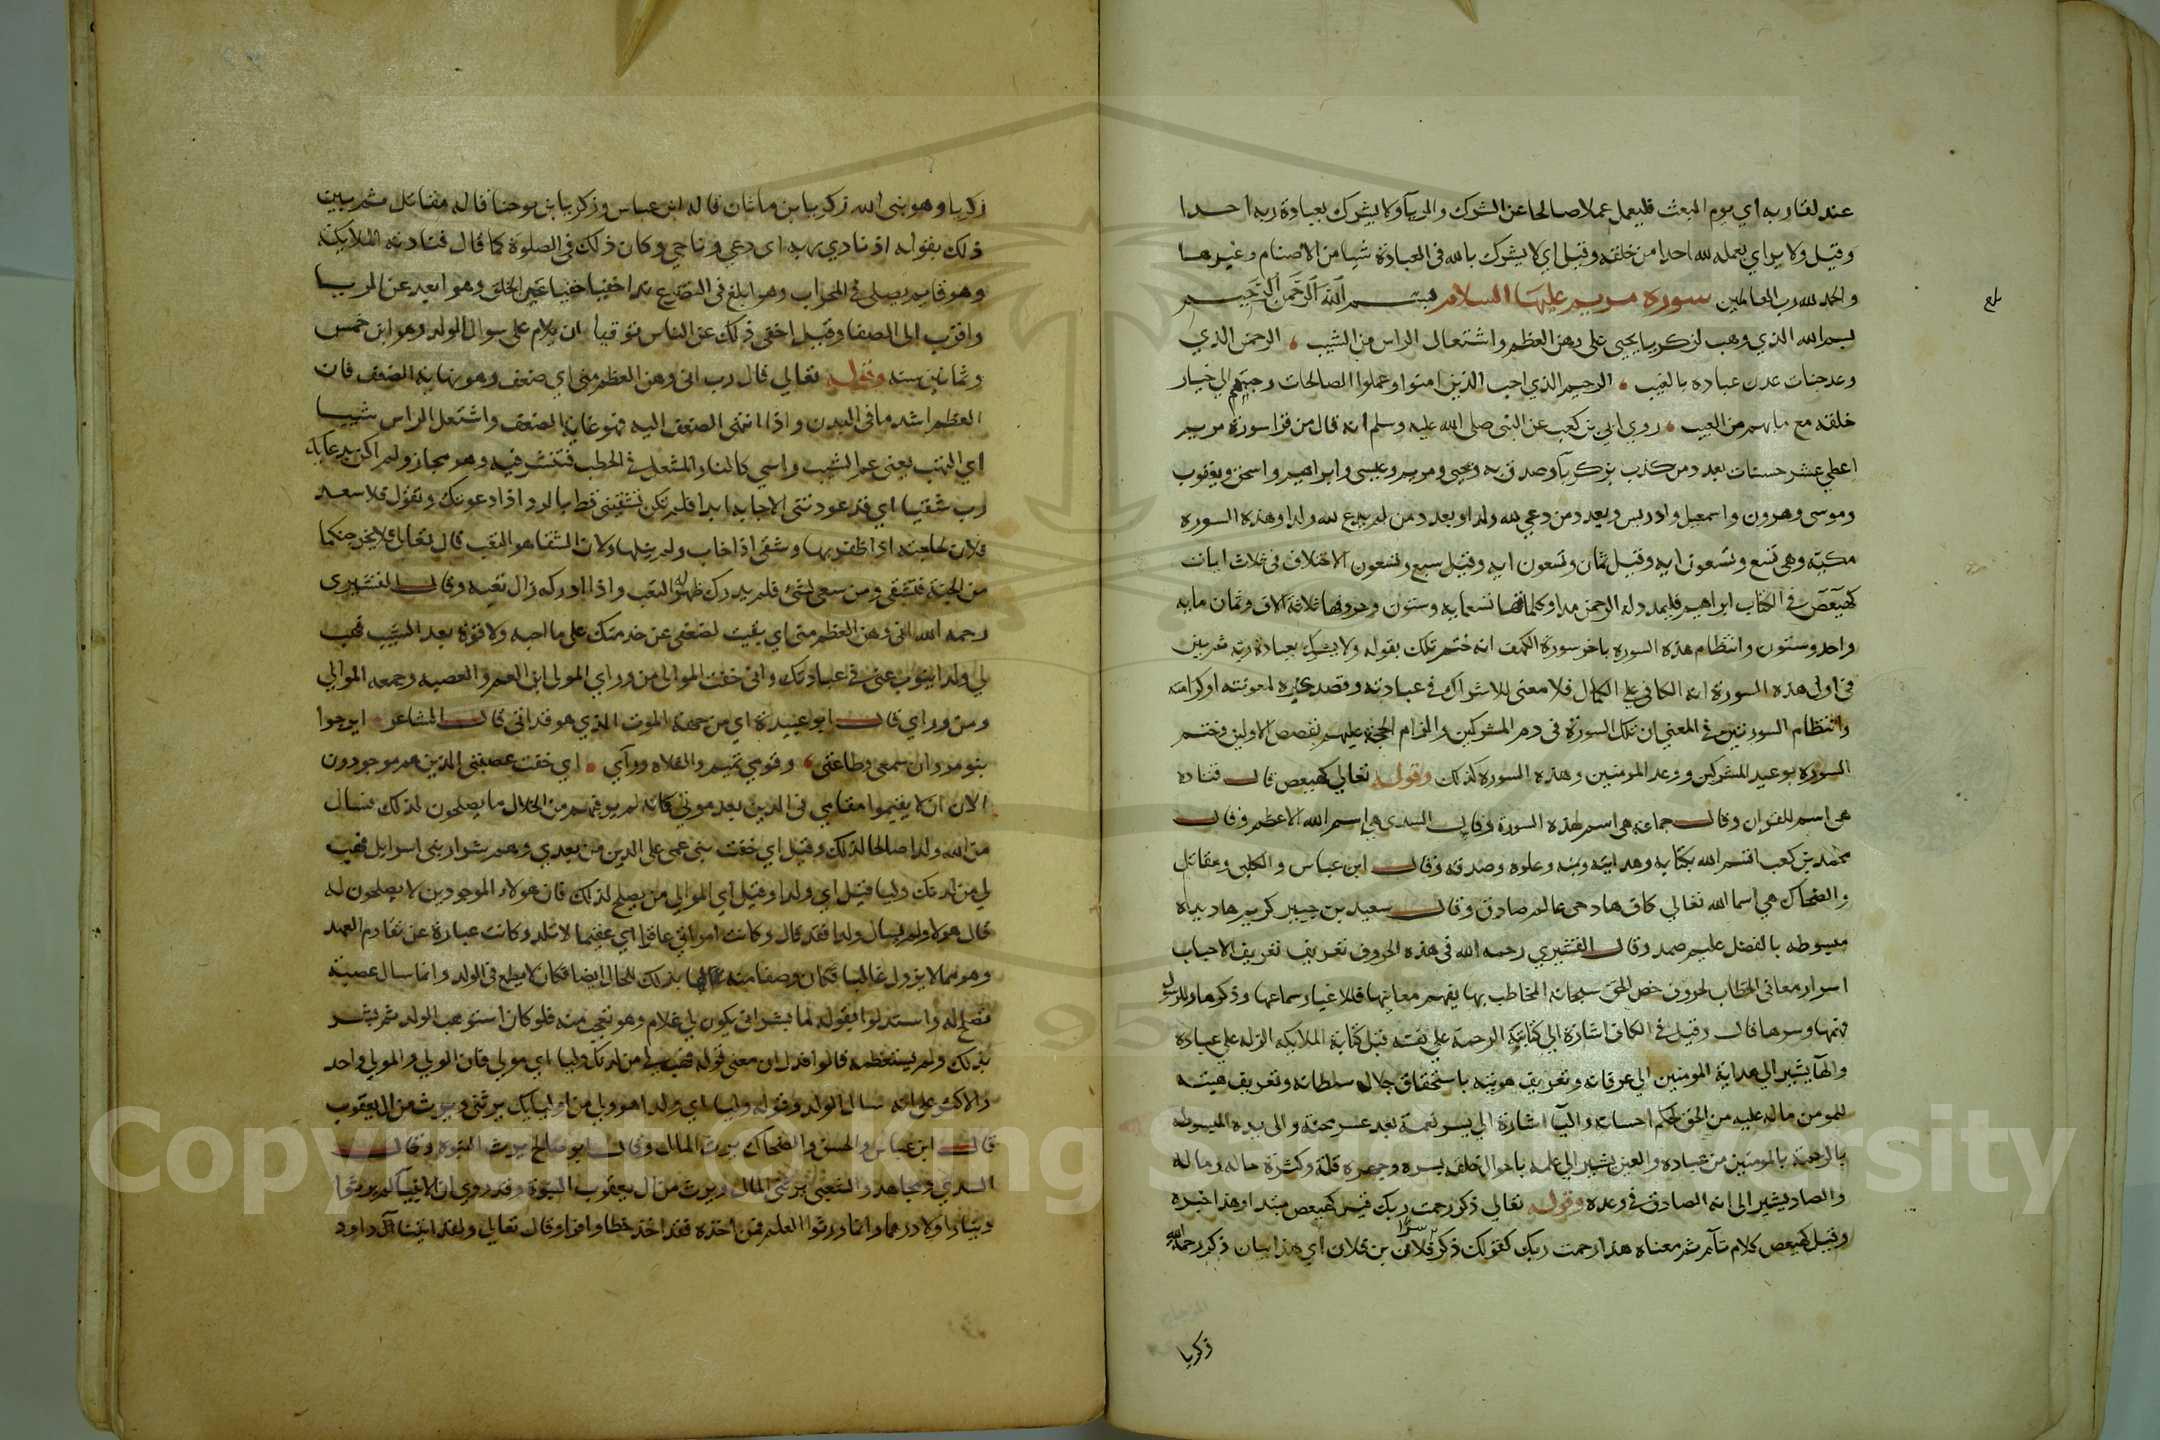 عند لقا ربه اي يوم البعث فليعمل عملا صالحا عن الشرك والريآ ولا يشرك بعبادة ربه احدا
وقيل ولا يراي بعمله لله احدا من خلقه وقيل اي لا يشرك بالله في العبادة شيا من الاصنام وغيرها
والحمد لله رب العالمين سورة مريم عليها السلام بسم الله الرحمن الرحيم
بلغ
بسم الله الذي وهب لزكريا يحيى على وهن العظم واشتعال الراس من الشيب الرحمن الذي
وعد جنات عدن عباده بالغيب الرحيم الذي احب الذين امنوا وعملوا الصالحات وحببهم الي خيار
خلقه مع ما بهم من العيب روي ابي بن كعب عن النبي صلى الله عليه وسلم انه قال من قرا سورة مريم
اعطي عشر حسنات بعدد من كذب بزكريآ وصدق به ويحيى ومريم وعيسى وابراهيم واسحق ويعقوب
وموسى وهرون واسمعيل وادريس وبعدد من دعي لله ولدا وبعدد من لم يدع لله ولدا وهذه السورة
مكية وهي تسع وتسعون ايه وقيل ثمان وتسعون ايه وقيل سبع وتسعون الاختلاف في ثلاث ايات
كهيعص في الكتاب ابراهيم فليمدد له الرحمن مدا وكلماتها تسعمايه وستون وحروفها ثلاثة الاف وثمان مايه
واحد وستون وانتظام هذه السورة باخر سورة الكهف انه ختم تلك بقوله ولا يشرك بعبادة ربه ثم بين
في اول هذه السورة انه الكافي على الكمال فلا معنى للاشراك في عبادته وقصد غيره لمعونته او كرامته
وانتظام السورتين في المعني ان تلك السورة في ذم المشركين والزام الحجة عليهم بقصص الاولين وختم
السورة بوعيد المشركين ووعد المومنين وهذه السورة كذلك وقوله تعالي كهيعص قال قتادة
هي اسم للقران وقال جماعة هي اسم لهذه السورة وقال السدي هي اسم الله الاعظم وقال
محمد بن كعب اقسم الله بكتابه وهدايته ومنه وعلوه وصدقه وقال ابن عباس والكلبي ومقاتل
والضحاك هي اسما الله تعالي كاف هاد حي عالم صادق وقال سعيد بن جبير كريم هاد يداه
مبسوطه بالفضل عليم صمد وقال القشيري رحمه الله في هذه الحروف تعريف الاحباب
اسرار معاني الخطاب لحروف خص الحق سبحانه المخاطب بها بفهم معانيها فللاغيار سماعها وذكرها وللرسول
فهمها وسرها قال وقيل في الكاف اشارة الي كتابته الرحمة علي نفسه قبل كتابة الملايكه الزلة علي عباده
والهآ يشير الي هداية المومنين الي عرفانه وتعريف هويته باستحقاق جلال سلطانه وتعريف
للمومن ماله عليه من الحق بحكم احسانه واليآ اشارة الي يسر نعمه بعد عسر محنه والى يده المبسوطه
بالرحمة بالمومنين من عباده والعين يشير الي علمه باحوال خلقه بسره وجهره قله وكثره حاله وماله
والصاد يشير الى انه الصادق في وعده وقوله تعالي ذكر رحمت ربك قيل كهيعص مبتدا وهذا خبره
وقيل كهيعص كلام تآم ثم معناه هذا رحمت ربك كقولك ذكر فلان بن فلان اي هذا بيان ذكر رحمة الله
زكريا
زكريا وهو نبي الله زكريا بن ماثان قاله ابن عباس وزكريا بن يوحنا قاله مقاتل ثم بين
ذلك بقوله اذ نادي ربه اى دعي وناجي وكان ذلك في الصلوة كما قال فنادته الملايكة
وهو قايم يصلى في المحراب وهو ابلغ في التضرع ندا خفيا خفيا عن الخلق وهو ابعد عن الريا
واقرب الى الصفا وقيل اخفى ذلك عن الناس توقيا ان يلام على سوال الولد وهو ابن خمس
وثمانين سنه وقوله تعالي قال رب انى وهن العظم مني اي ضعف وهو نهاية الضعف فان
العظم اشد ما في البدن واذا انتهى الضعف اليه فهو غاية الضعف واشتعل الراس شيبا
اي التهب يعني عم الشيب راسي كالنار المشعل في الحطب فتنتشر فيه وهو مجاز ولم اكن بدعايك
رب شقيا اي قد عودتني الاجابه ابدا فلم تكن تشقيني قط بالرد اذا دعوتك وتقول فلان سعد
فلان بحاجته اذا ظفر بها وشقي اذا خاب ولم ينلها ولان الشقا هو التعب قال تعالى فلا يخرجنكما
من الجنة فتشقى ومن سعى لشئ فلم يدرك ظهر له التعب واذا ادركه زال تعبه وقال القشيري
رحمه الله اني وهن العظم منى اي بقيت لضعفي عن خدمتك على ما احبه ولا قوة بعد المشيب فهب
لي ولدا ينوب عني في عبادتك وانى خفت الموالى من وراي المولى ابن العم والعصبه وجمعه الموالي
ومن وراي قال ابو عبيدة اي من جهة الموت الذي هو قدامي قال الشاعر ايرجوا
بنو مروان سمعي وطاعتي وقومي تميم والفلاة ورآي اي خفت عصبتي الذين هم موجودون
الان ان لا يقيموا مقامي في الدين بعد موتي كانه لم ير فيهم من الخلال ما يصلحون لذلك فسال
من الله ولدا صالحا لذلك وقيل اي خفت بني عمي على الدين من بعدي وهم شرار بني اسرايل فهب
لي من لدنك وليا قيل اي ولدا وقيل اي الموالي من يصلح لذلك فان هولاء الموجودين لا يصلحون له
قال هولا ولم يسال ولدا فقد قال وكانت امراتي عاقرا اي عقيما لا تلد وكانت عبارة عن تقادم العهد
وهو مما لا يزول غالبا فكان وصفا منه لها بذلك للحال ايضا فكان لا يطمع في الولد وانما سال عصبة
تصلح له واستدلوا بقوله لما بشر انى يكون لي غلام وهو تعجب منه فلو كان استوهب الولد ثم بشر
بذلك ولم يستعظمه قالوا فدل ان معنى قوله فهب لي من لدنك وليا اي مولي فان الولي والمولي واحد
والاكثر على انه سال الولد وقوله وليا اي ولدا هو ولي من اوليايك يرثني ويرث من ال يعقوب
قال ابن عباس والحسن والضحاك يرث المال وقال ابو صالح يرث النبوة وقال
السدي ومجاهد والشعبي يرثني المال ويرث من ال يعقوب النبوة وقد روي ان الانبيآ لم يورثوا
دينارا ولا درهما وانما ورثوا العلم فمن اخذه فقد اخذ حظا وافرا وقال تعالي ولقد اتينا آل داود